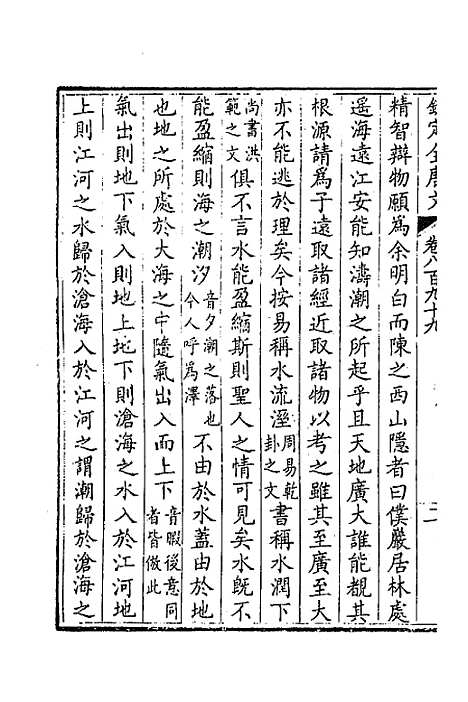 欽定全唐文 卷八百九十九 二
精智辯物願為余明白而陳之西山隱者曰僕嚴居林處
遥海遠江安能知濤潮之所起乎且天地廣大誰能覩其
根源請為子遠取諸經近取諸物以考之雖其至廣至大
亦不能逃於理矣今按易稱水流溼周易乾卦之文書稱水潤下
尚書洪範之文俱不言水能盈縮斯則聖人之情可見矣水既不
能盈縮則海之潮汐音夕潮之落也今人呼為澤不由於水蓋由於地
也地之所處於大海之中隨氣出入而上下音暇後意同者皆倣此
氣出則地下氣入則地上地下則滄海之水入於江河地
上則江河之水歸於滄海入於江河之謂潮歸於滄海之